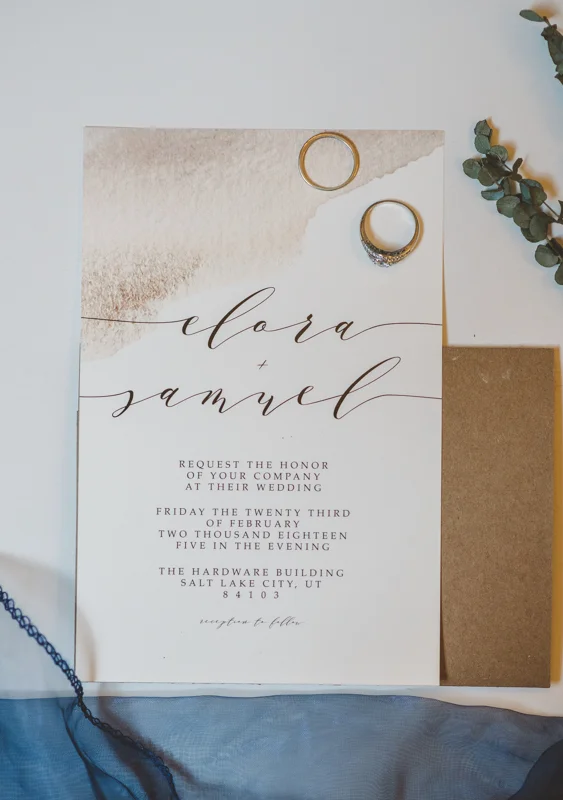 elora
+
samuel
REQUEST THE HONOR
OF YOUR COMPANY
AT THEIR WEDDING
FRIDAY THE TWENTY THIRD
OF FEBRUARY
TWO THOUSAND EIGHTEEN
FIVE IN THE EVENING
THE HARDWARE BUILDING
SALT LAKE CITY, UT
84103
reception to follow